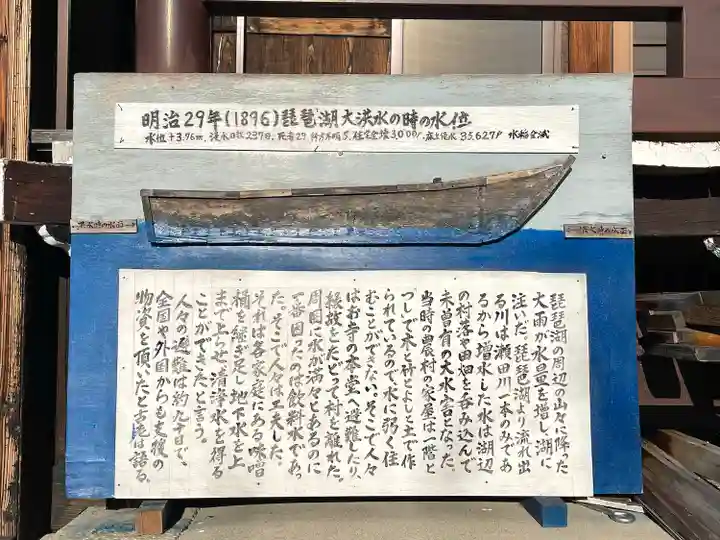 明治29年(1896)琵琶湖大洪水の時の水位
水位+3.76m、浸水日数237日、死者29、行方不明5、住宅全壊3,000戸、床上浸水35,627戸 水稲全滅
洪水時の水面
洪水時の水面
琵琶湖の周辺の山々に降った
大雨が水量を増し、湖に
注いだ。琵琶湖より流れ出
る川は瀬田川一本のみであ
るから増水した水は湖辺
の村落や田畑を呑み込んで
未曽有の大水害となった。
当時の農村の家屋は一階と
つしで木と竹とよしと土で作
られているので、水に弱く住
むことができない。そこで人々
はお寺の本堂へ避難したり、
縁故をたどって村を離れた。
周囲に水が満々とあるのに
一番困ったのは飲料水であっ
た。そこで人々は工夫した。
それは各家庭にある味噌
桶を継ぎ足し地下水を上
まで上らせて清浄水を得る
ことができたと言う。
人々の避難は約九十日で、
全国や外国からも支援の
物資を頂いたと古老は語る。